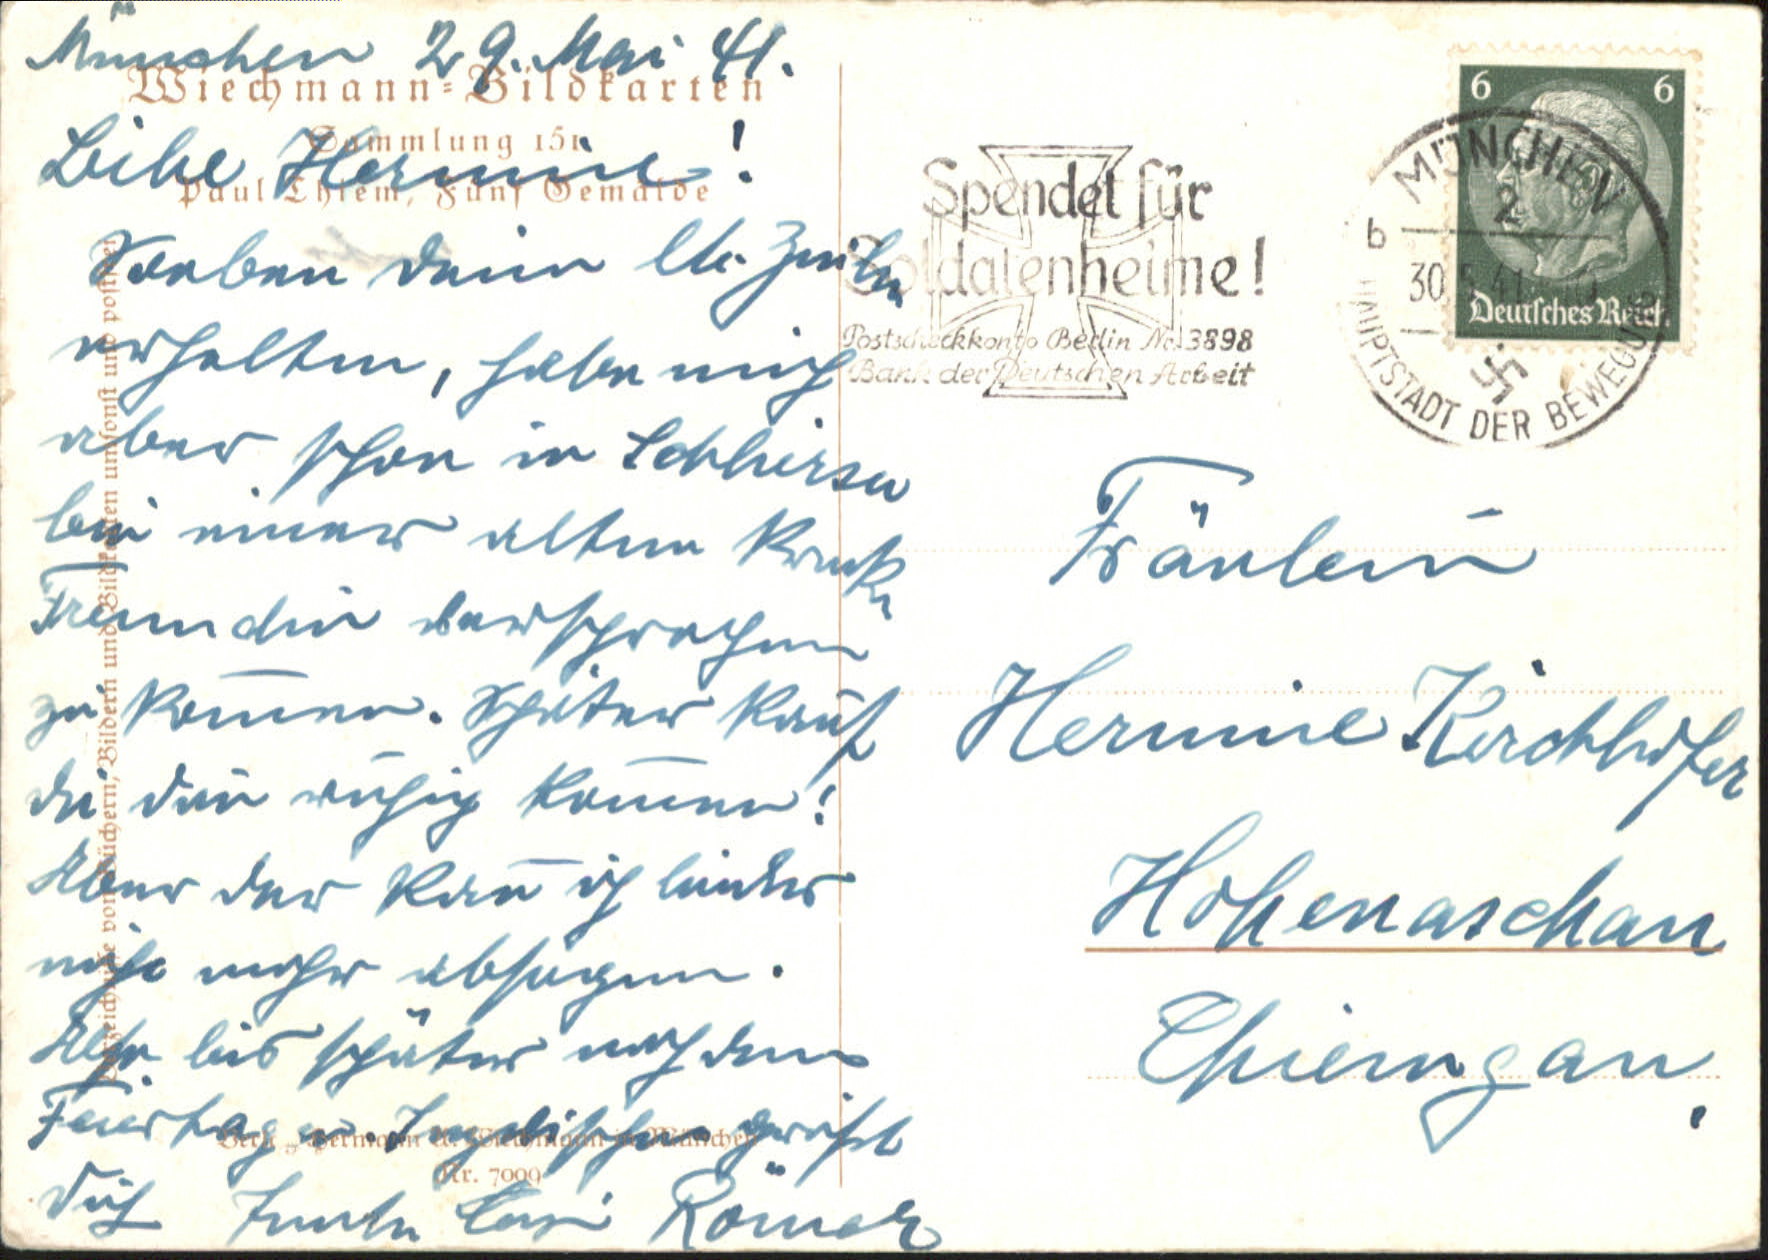 München 29. Mai 41.
Wiechmann-Bildkarten
Sammlung 151
Paul Thiem, Fünf Gemälde
Liebe Hermine!
Soeben deine lb. Zeilen
erhalten, habe mich
aber schon in Schliersee
bei einer alten
Freundin versprochen
zu kommen. Später kanst
du dan ruhig kommen!
Aber der kan ich leider
nicht mehr absagen.
Also bis später nach dem
Feiertag u. grüßt
dich Römer
Verlag Hermann A. Wiechmann in München
Nr. 7009
Verzeichnisse von Büchern, Bildern und Bildkarten umsonst und postfrei
Spendet für
Soldatenheime!
Postscheckkonto Berlin Nr. 3898
Bank der Deutschen Arbeit
6 6
Deutsches Reich
MÜNCHEN
2
b
30.5.41
HAUPTSTADT DER BEWEGUNG
Fräulein
Hermine Kirchhofer
Hohenaschau
Chiemgau.